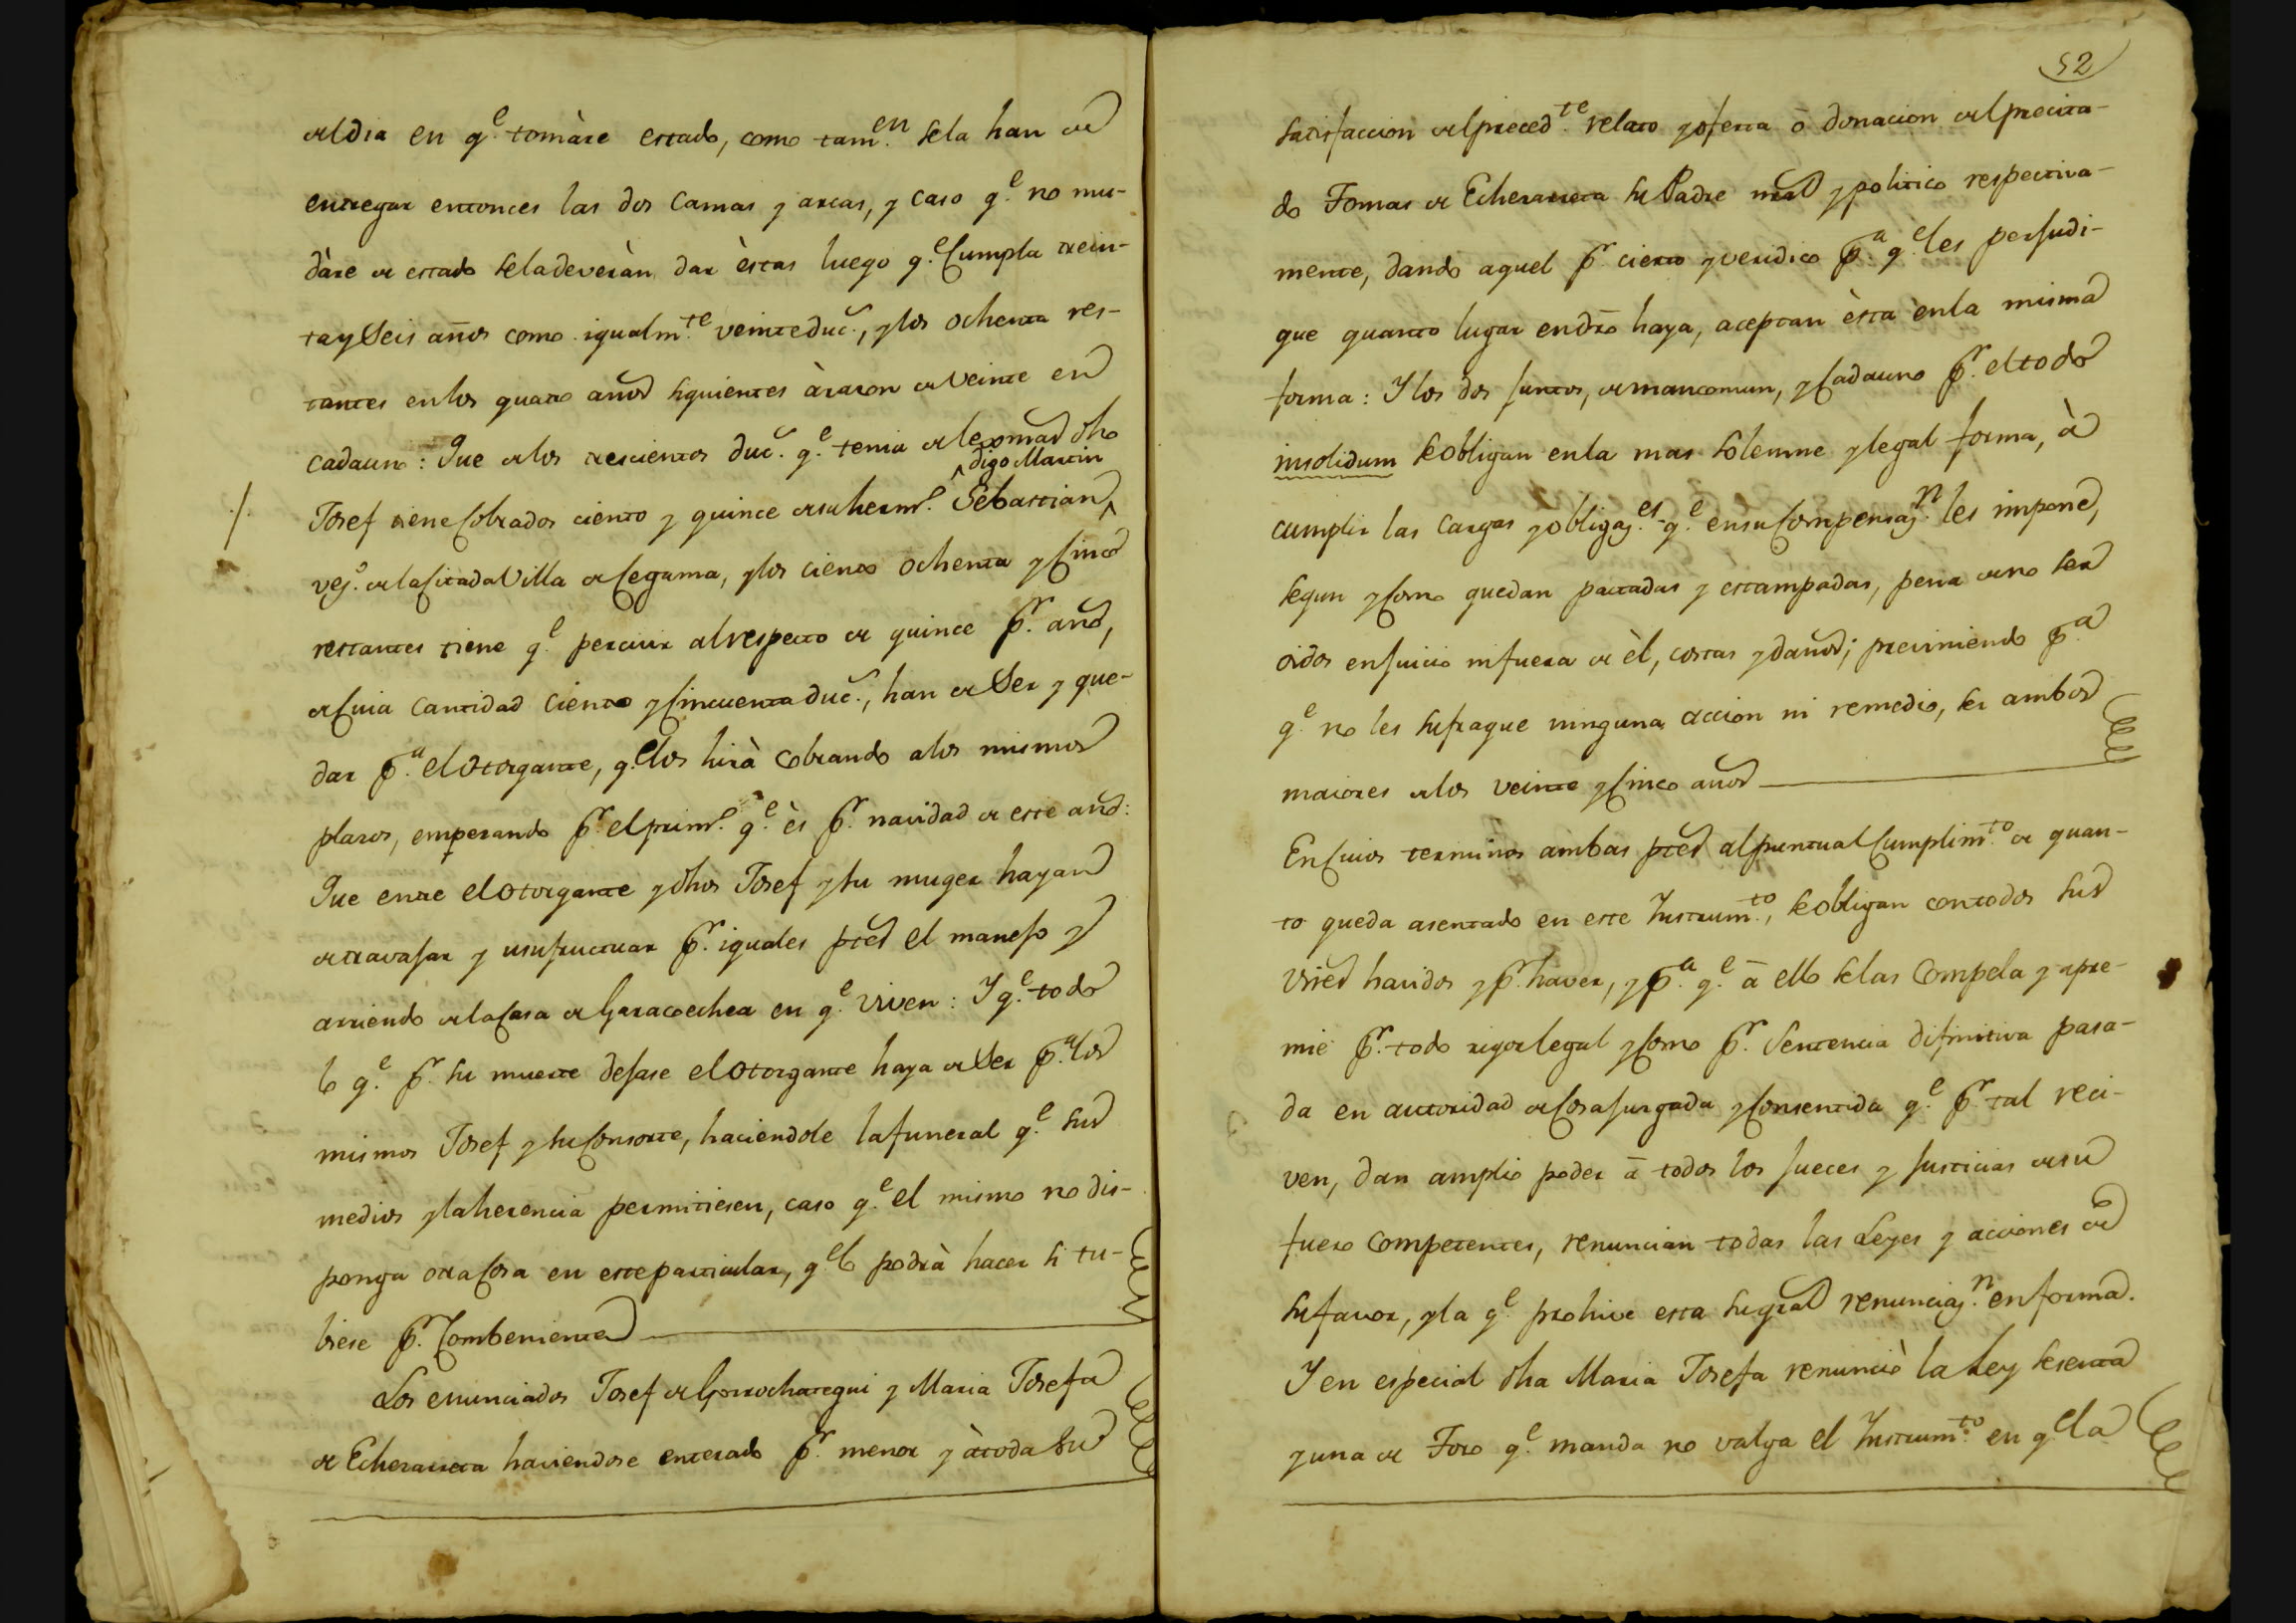 del dia en q.e tomàre estado, como tam.en se la han de
entregar entonces las dos camas y arcas, y caso q.e no mu-
dàre de estado se la deveràn dar èstas luego q.e Cumpla trein-
ta y Seis años como igualm.te veinte duc.s, y los ochenta res-
tantes en los quatro años siguientes à razon de Veinte en
cadauno: Que de los trescientos duc.s q.e tenia de lexitima dho
^ digo Martin
Josef tiene Cobrados ciento y quince de su herm.o Sebastian ^
vez.o de la Citada Villa de Cegama, y los ciento ochenta y Cinco
restantes tiene q.e percivir al respecto de quince p.r año,
de Cuia cantidad ciento y Cincuenta duc.s, han de Ser y que-
dar p.a el Otorgante, q.e los hirà cobrando a los mismos
plazos, empezando p.r el prim.o q.e ès p.r navidad de este año:
Que entre el Otorgante y dhos Josef y su muger hayan
de travajar y usufructuar p.r iguales ptes el manejo y
arriendo de la Casa de Garacoechea en q.e viven: Y q.e todo
lo q.e p.r su muerte dejase el Otorgante haya de Ser p.a los
mismos Josef y su Consorte, haciendole la funeral q.e sus
medios y la herencia permitiesen, caso q.e el mismo no dis-
ponga otra Cosa en este particular, q.e lo podrà hacer si tu-
biese p.r Combeniente
Los enunciados Josef de Gorrochategui y Maria Josefa
de Echezarreta haviendose enterado p.r menor y à toda su
52
satisfaccion del preced.te relato y oferta ō donacion del precita-
do Tomas de Echezarreta su Padre nral y politico respectiva-
mente, dando aquel p.r cierto y veridico p.a q.e les perjudi-
que quanto lugar en dro haya, aceptan èsta en la misma
forma: Y los dos juntos, de mancomun, y Cadauno p.r el todo
insolidum se obligan en la mas solemne y legal forma, à
cumplir las Cargas y obligaz.es q.e en su Compensaz.n les impone,
segun y Como quedan pactadas y estampadas, pena de no ser
oidos en juicio ni fuera de èl, costas y daños; previniendo p.a
q.e no les sufrague ninguna accion ni remedio, ser ambos
maiores de los veinte y Cinco años
En Cuios terminos ambas ptes al puntual Cumplim.to de quan-
to queda asentado en este Instrum.to, se obligan con todos sus
vienes havidos y p.r haver, y p.a q.e ā ello se las Compela y apre-
mie p.r todo rigor legal y Como p.r Sentencia difinitiva pasa-
da en autoridad de Cosa juzgada y Consentida q.e p.r tal reci-
ven, dan amplio poder ā todos los jueces y justicias de su
fuero competentes, renuncian todas las Leyes y acciones de
su favor, y la q.e prohive esta su gral renunciaz.n en forma.
Y en especial dha Maria Josefa renunciò la Ley sesenta
y una de Toro q.e manda no valga el Instrum.to en q.e la